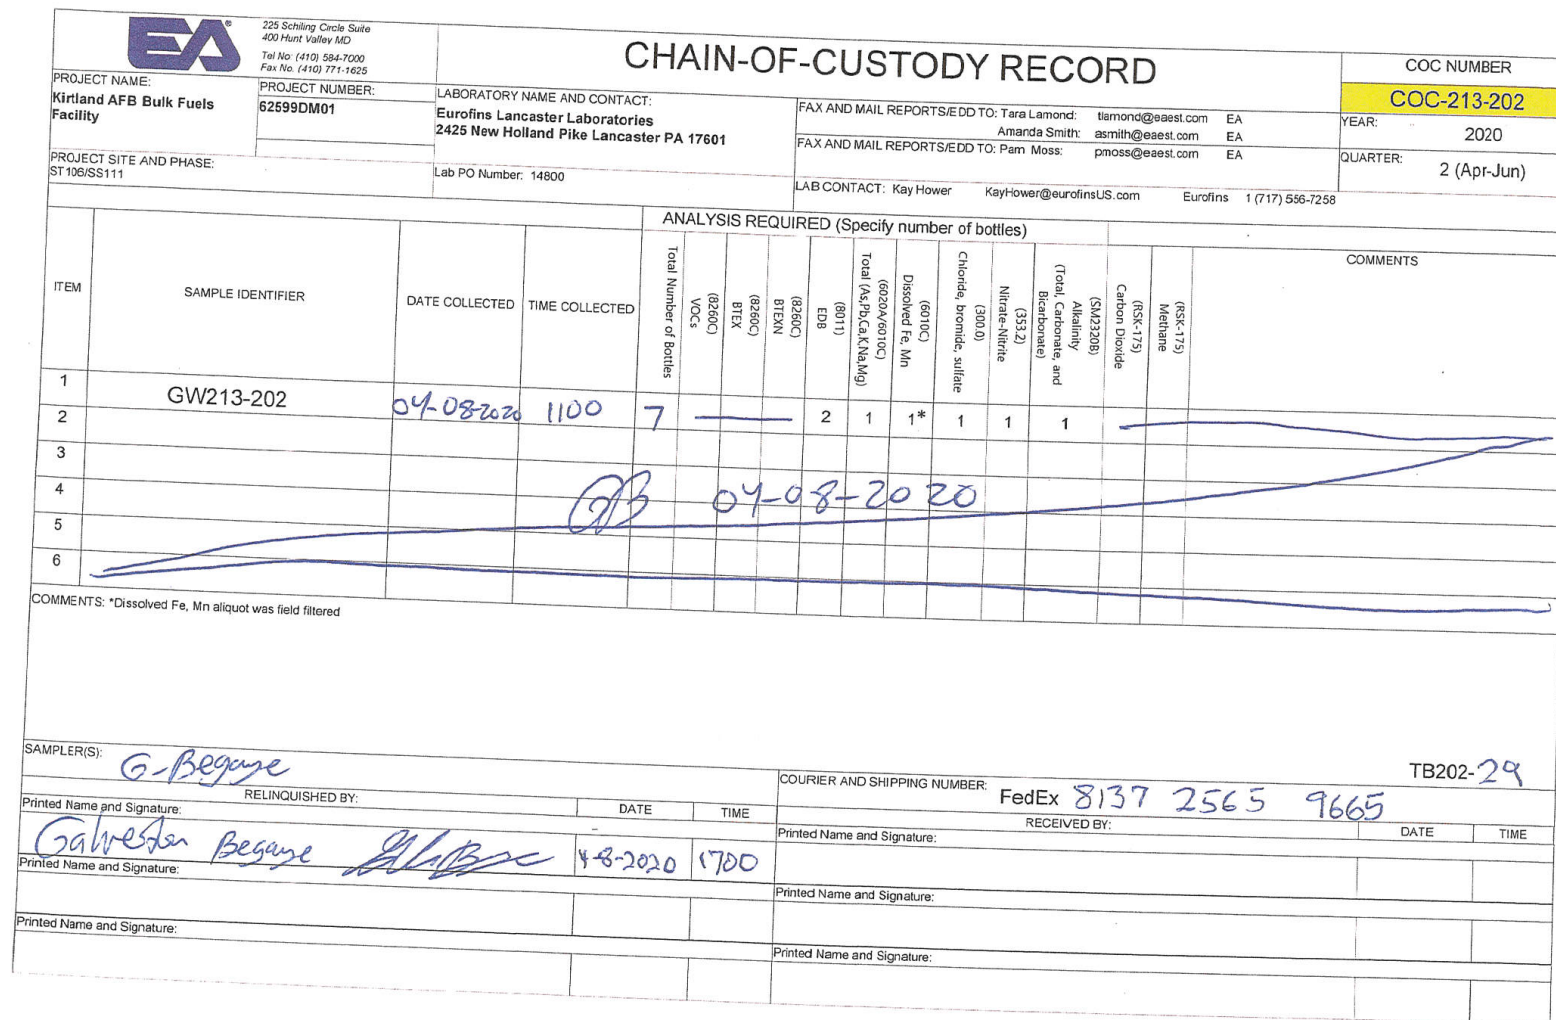 EA®
225 Schiling Circle Suite
400 Hunt Valley MD
Tel No: (410) 584-7000
Fax No. (410) 771-1625
CHAIN-OF-CUSTODY RECORD
COC NUMBER
COC-213-202
PROJECT NAME:
Kirtland AFB Bulk Fuels
Facility
PROJECT NUMBER:
62599DM01
LABORATORY NAME AND CONTACT:
Eurofins Lancaster Laboratories
2425 New Holland Pike Lancaster PA 17601
FAX AND MAIL REPORTS/EDD TO: Tara Lamond: tlamond@eaest.com EA
Amanda Smith: asmith@eaest.com EA
FAX AND MAIL REPORTS/EDD TO: Pam Moss: pmoss@eaest.com EA
YEAR:
2020
QUARTER:
2 (Apr-Jun)
PROJECT SITE AND PHASE:
ST106/SS111
Lab PO Number: 14800
LAB CONTACT: Kay Hower KayHower@eurofinsUS.com Eurofins 1 (717) 556-7258
ANALYSIS REQUIRED (Specify number of bottles)
ITEM
SAMPLE IDENTIFIER
DATE COLLECTED
TIME COLLECTED
Total Number of Bottles
(8260C)
VOCs
(8260C)
BTEX
(8260C)
BTEXN
(8011)
EDB
(6020A/6010C)
Total (As,Pb,Ca,K,Na,Mg)
(6010C)
Dissolved Fe, Mn
(300.0)
Chloride, bromide, sulfate
(353.2)
Nitrate-Nitrite
(SM2320B)
Alkalinity
(Total, Carbonate, and
Bicarbonate)
(RSK-175)
Carbon Dioxide
(RSK-175)
Methane
COMMENTS
1 GW213-202 04-08-2020 1100 7 2 1 1* 1 1 1
2
3
4 GB 04-08-2020
5
6
COMMENTS: *Dissolved Fe, Mn aliquot was field filtered
SAMPLER(S): G-Begaye
TB202-29
COURIER AND SHIPPING NUMBER: FedEx 8137 2565 9665
RELINQUISHED BY:
RECEIVED BY:
Printed Name and Signature: DATE TIME
Printed Name and Signature: DATE TIME
Galveston Begaye 4-8-2020 1700
Printed Name and Signature:
Printed Name and Signature:
Printed Name and Signature:
Printed Name and Signature: